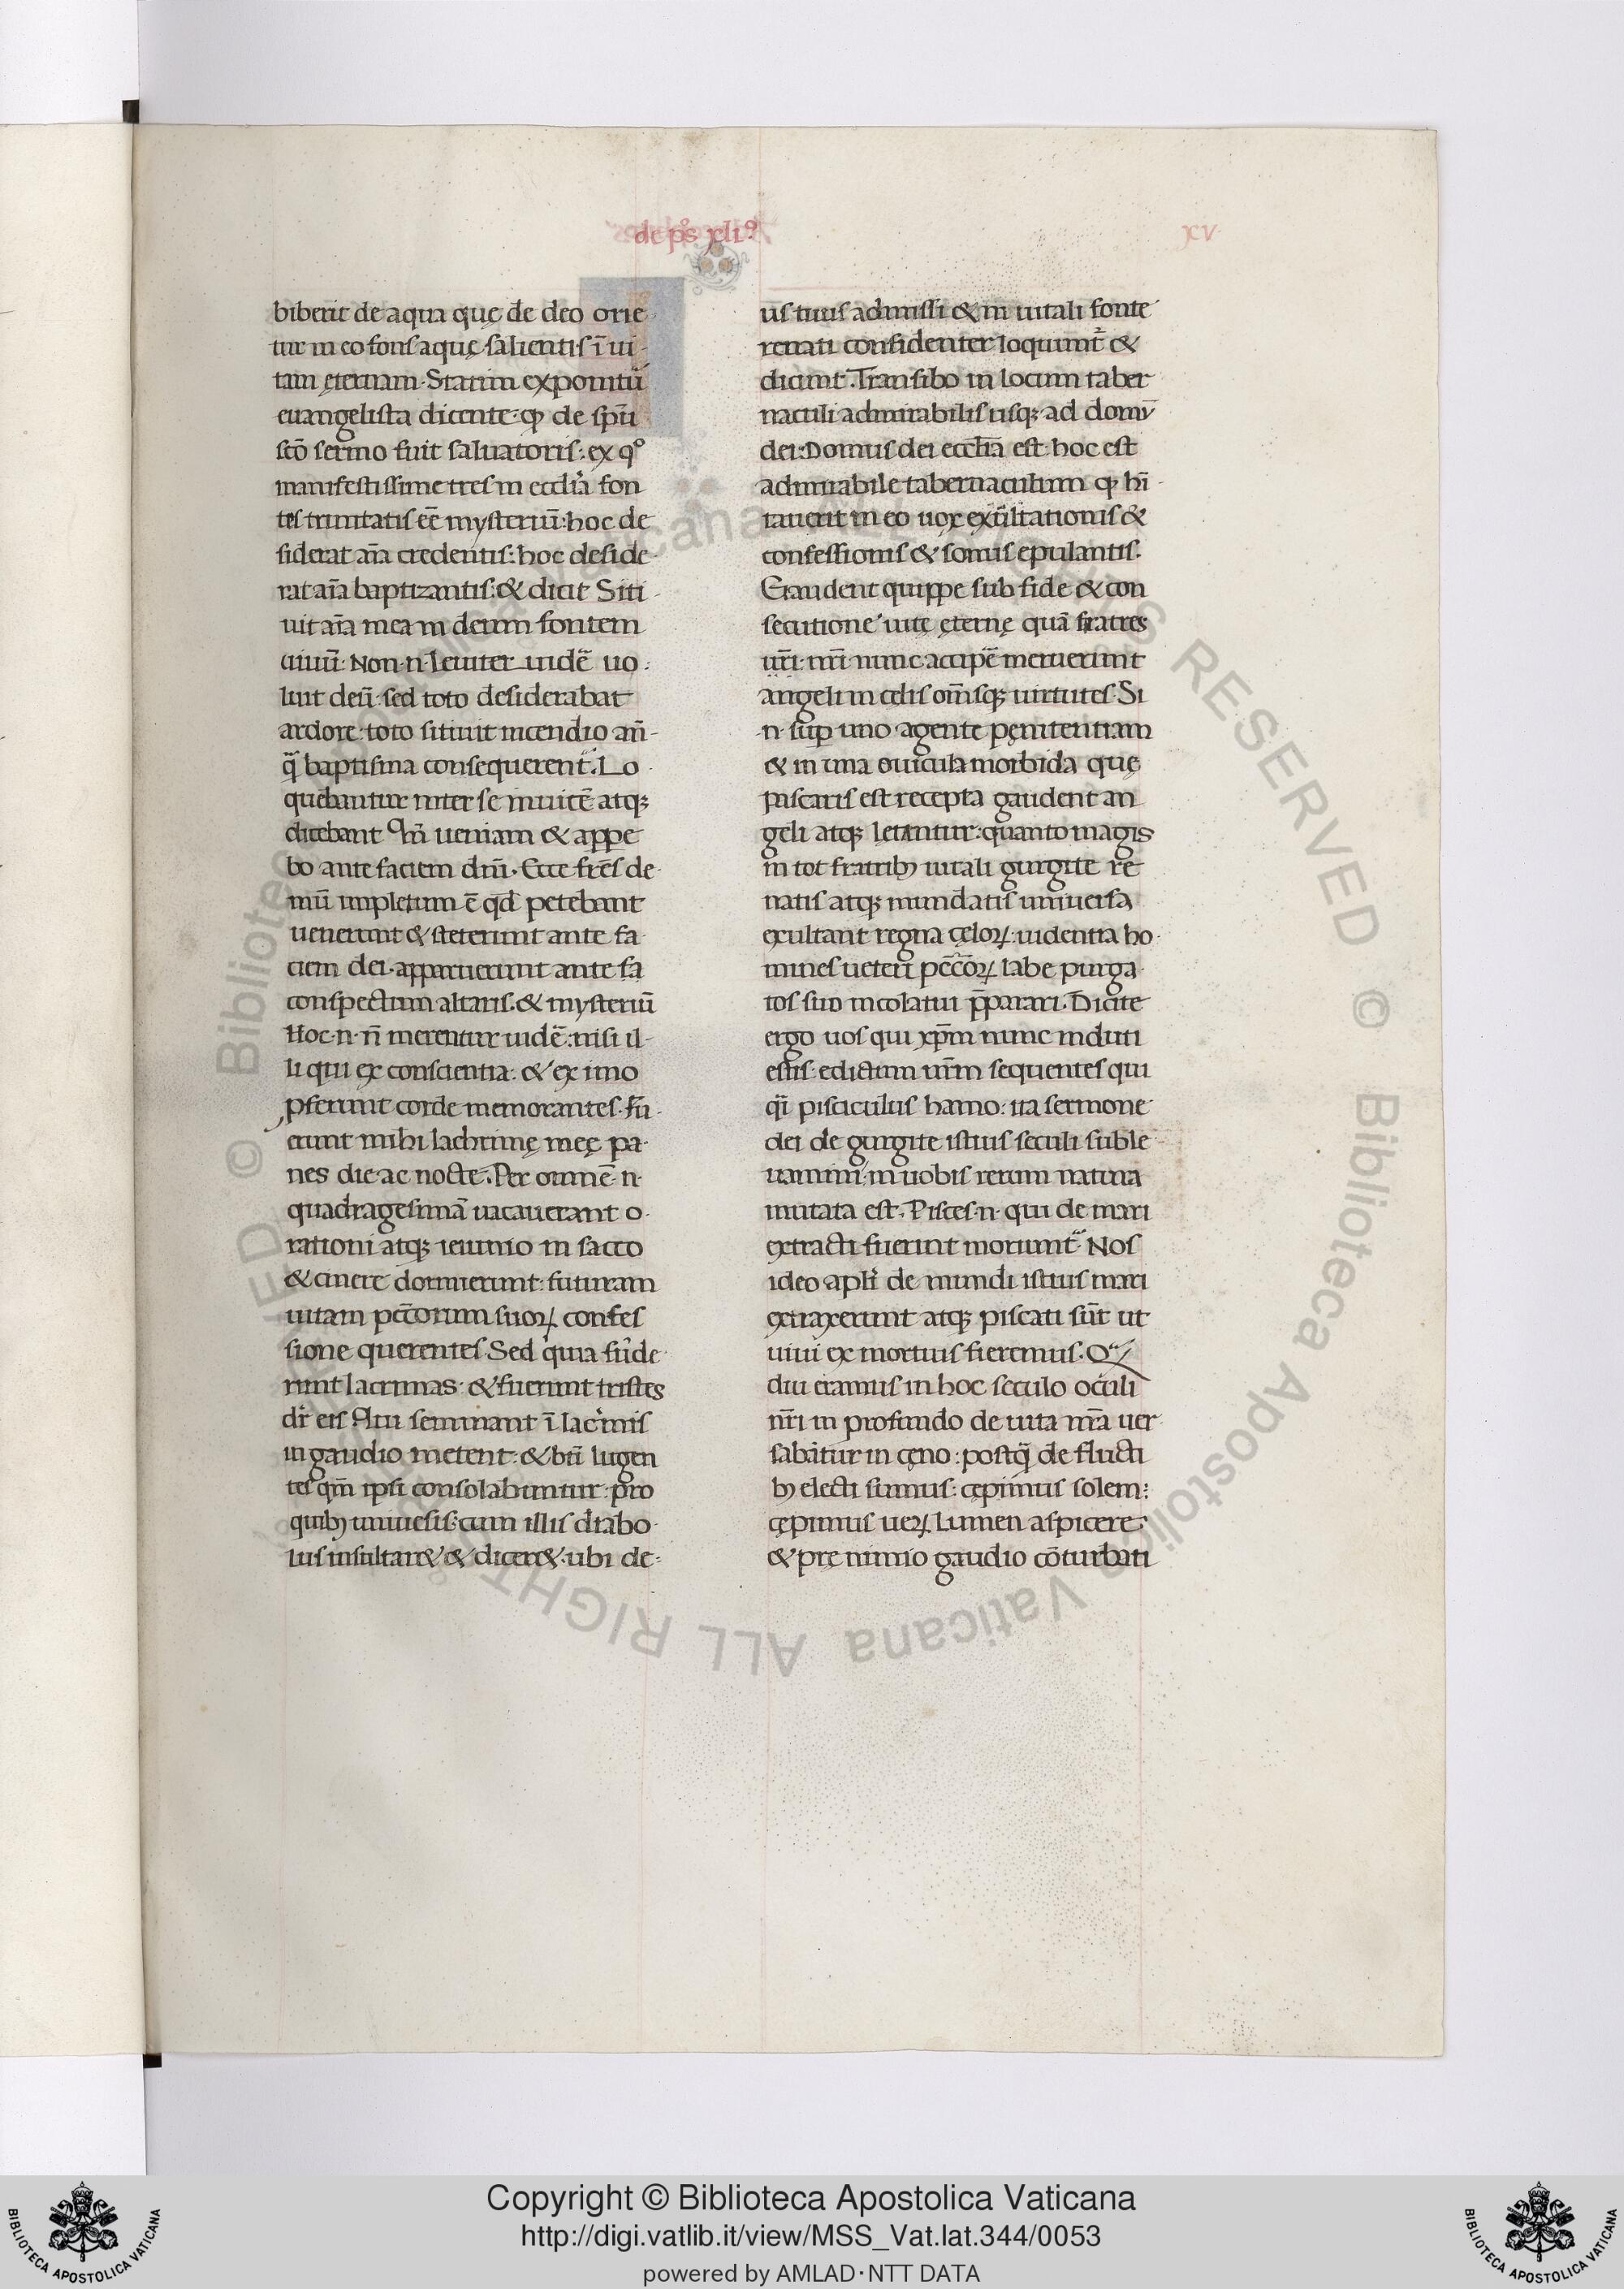 de ps̊ xliº
xv
biberit de aqua quę de deo orie
tur in eo fons aquę salientis ī ui-
tam ęternam. Statim exponitū
euangelista dicente: ꝙ de spū
scō sermo fuit saluatoris: ex qº
manifestissime tres in eccłia fon
tes trinitatis eē mysteriū: hoc de
siderat aīa credentis: hoc deside-
rat aīa baptizantis: & dicit Siti-
uit aīa mea in deum fontem
uiuū: Non .n. leuiter uidē uo:
luit deū: sed toto desiderabat
ardore: toto sitiuit incendio an̄-
q̄ baptisma consequerent̄. Lo-
quebantur inter se inuicē atqꝫ
dicebant Qn̄ ueniam & appe
bo ante faciem dn̄i. Ecce frēs de-
mū impletum ē qd̄ petebant
uenerunt & steterunt ante fa-
ciem dei. apparuerunt ante fa
conspectum altaris. & mysteriū
Hoc .n. n̄ merentur uidē: nisi il-
li qui ex conscientia: & ex imo
ꝓferunt corde memorantes. Fu-
erunt mihi lachrimę meę pa-
nes die ac nocte. Per omnē .n.
quadragesimā uacauerant o-
rationi atqꝫ ieiunio in sacco
& cinere dormierunt: futuram
uitam pec̄torum suoꝝ confes
sione querentes. Sed quia fude-
runt lacrimas: & fuerunt tristes
dr̄ eis Qui seminant ī lac̓mis
in gaudio metent: & bt̄i lugen
tes qm̄ ipsi consolabuntur: pro
quibꝫ uniuesis: cum illis diabo-
lus insultar& & dicer&. ubi de-
us tuus admissi & in uitali fonte
renati confidenter loquunt̄ &
dicunt. Transibo in locum taber
naculi admirabilis usqꝫ ad domū
dei: Domus dei eccłia est: hoc est
admirabile tabernaculum ꝙ hī-
tauerit in eo uox exultationis &
confessionis & sonus epulantis.
Gaudent quippe sub fide & con
secutione uitę ęternę quā fratres
ur̄i: nr̄i nunc accipē meruerunt
angeli in celis om̄sqꝫ uirtutes. Si
.n. sup̄ uno agente pęnitentiam
& in una ouicula morbida quę
pascaris est recepta gaudent an
geli atqꝫ letantur: quanto magis
in tot fratribꝫ uitali gurgite re
natis atqꝫ mundatis uniuersa
exultant regna cęloꝝ. uidentia ho-
mines ueteri pec̄c̄oꝝ labe purga-
tos suo incolatui p̄parari. Dicite
ergo uos qui xp̄m nunc induti
estis: edictum nr̄m sequentes qui
q̄i pisciculus hamo: ita sermone
dei de gurgite istius seculi suble
uamini: in uobis rerum natura
mutata est. Pisces .n. qui de mari
extracti fuerint moriunt̄. Nos
ideo apłi de mundi istius mari
extraxerunt atqꝫ piscati sūt ut
uiui ex mortuis fieremus. Qᵃ
diu eramus in hoc seculo oculi
nr̄i in profundo de uita nr̄a uer-
sabātur in cęno: postq̄ de flucti
bꝫ electi sumus: cępimus solem:
cępimus ueꝝ Lumen aspicere:
& prę nimio gaudio cōturbati
Copyright © Biblioteca Apostolica Vaticana
http://digi.vatlib.it/view/MSS_Vat.lat.344/0053
powered by AMLAD·NTT DATA